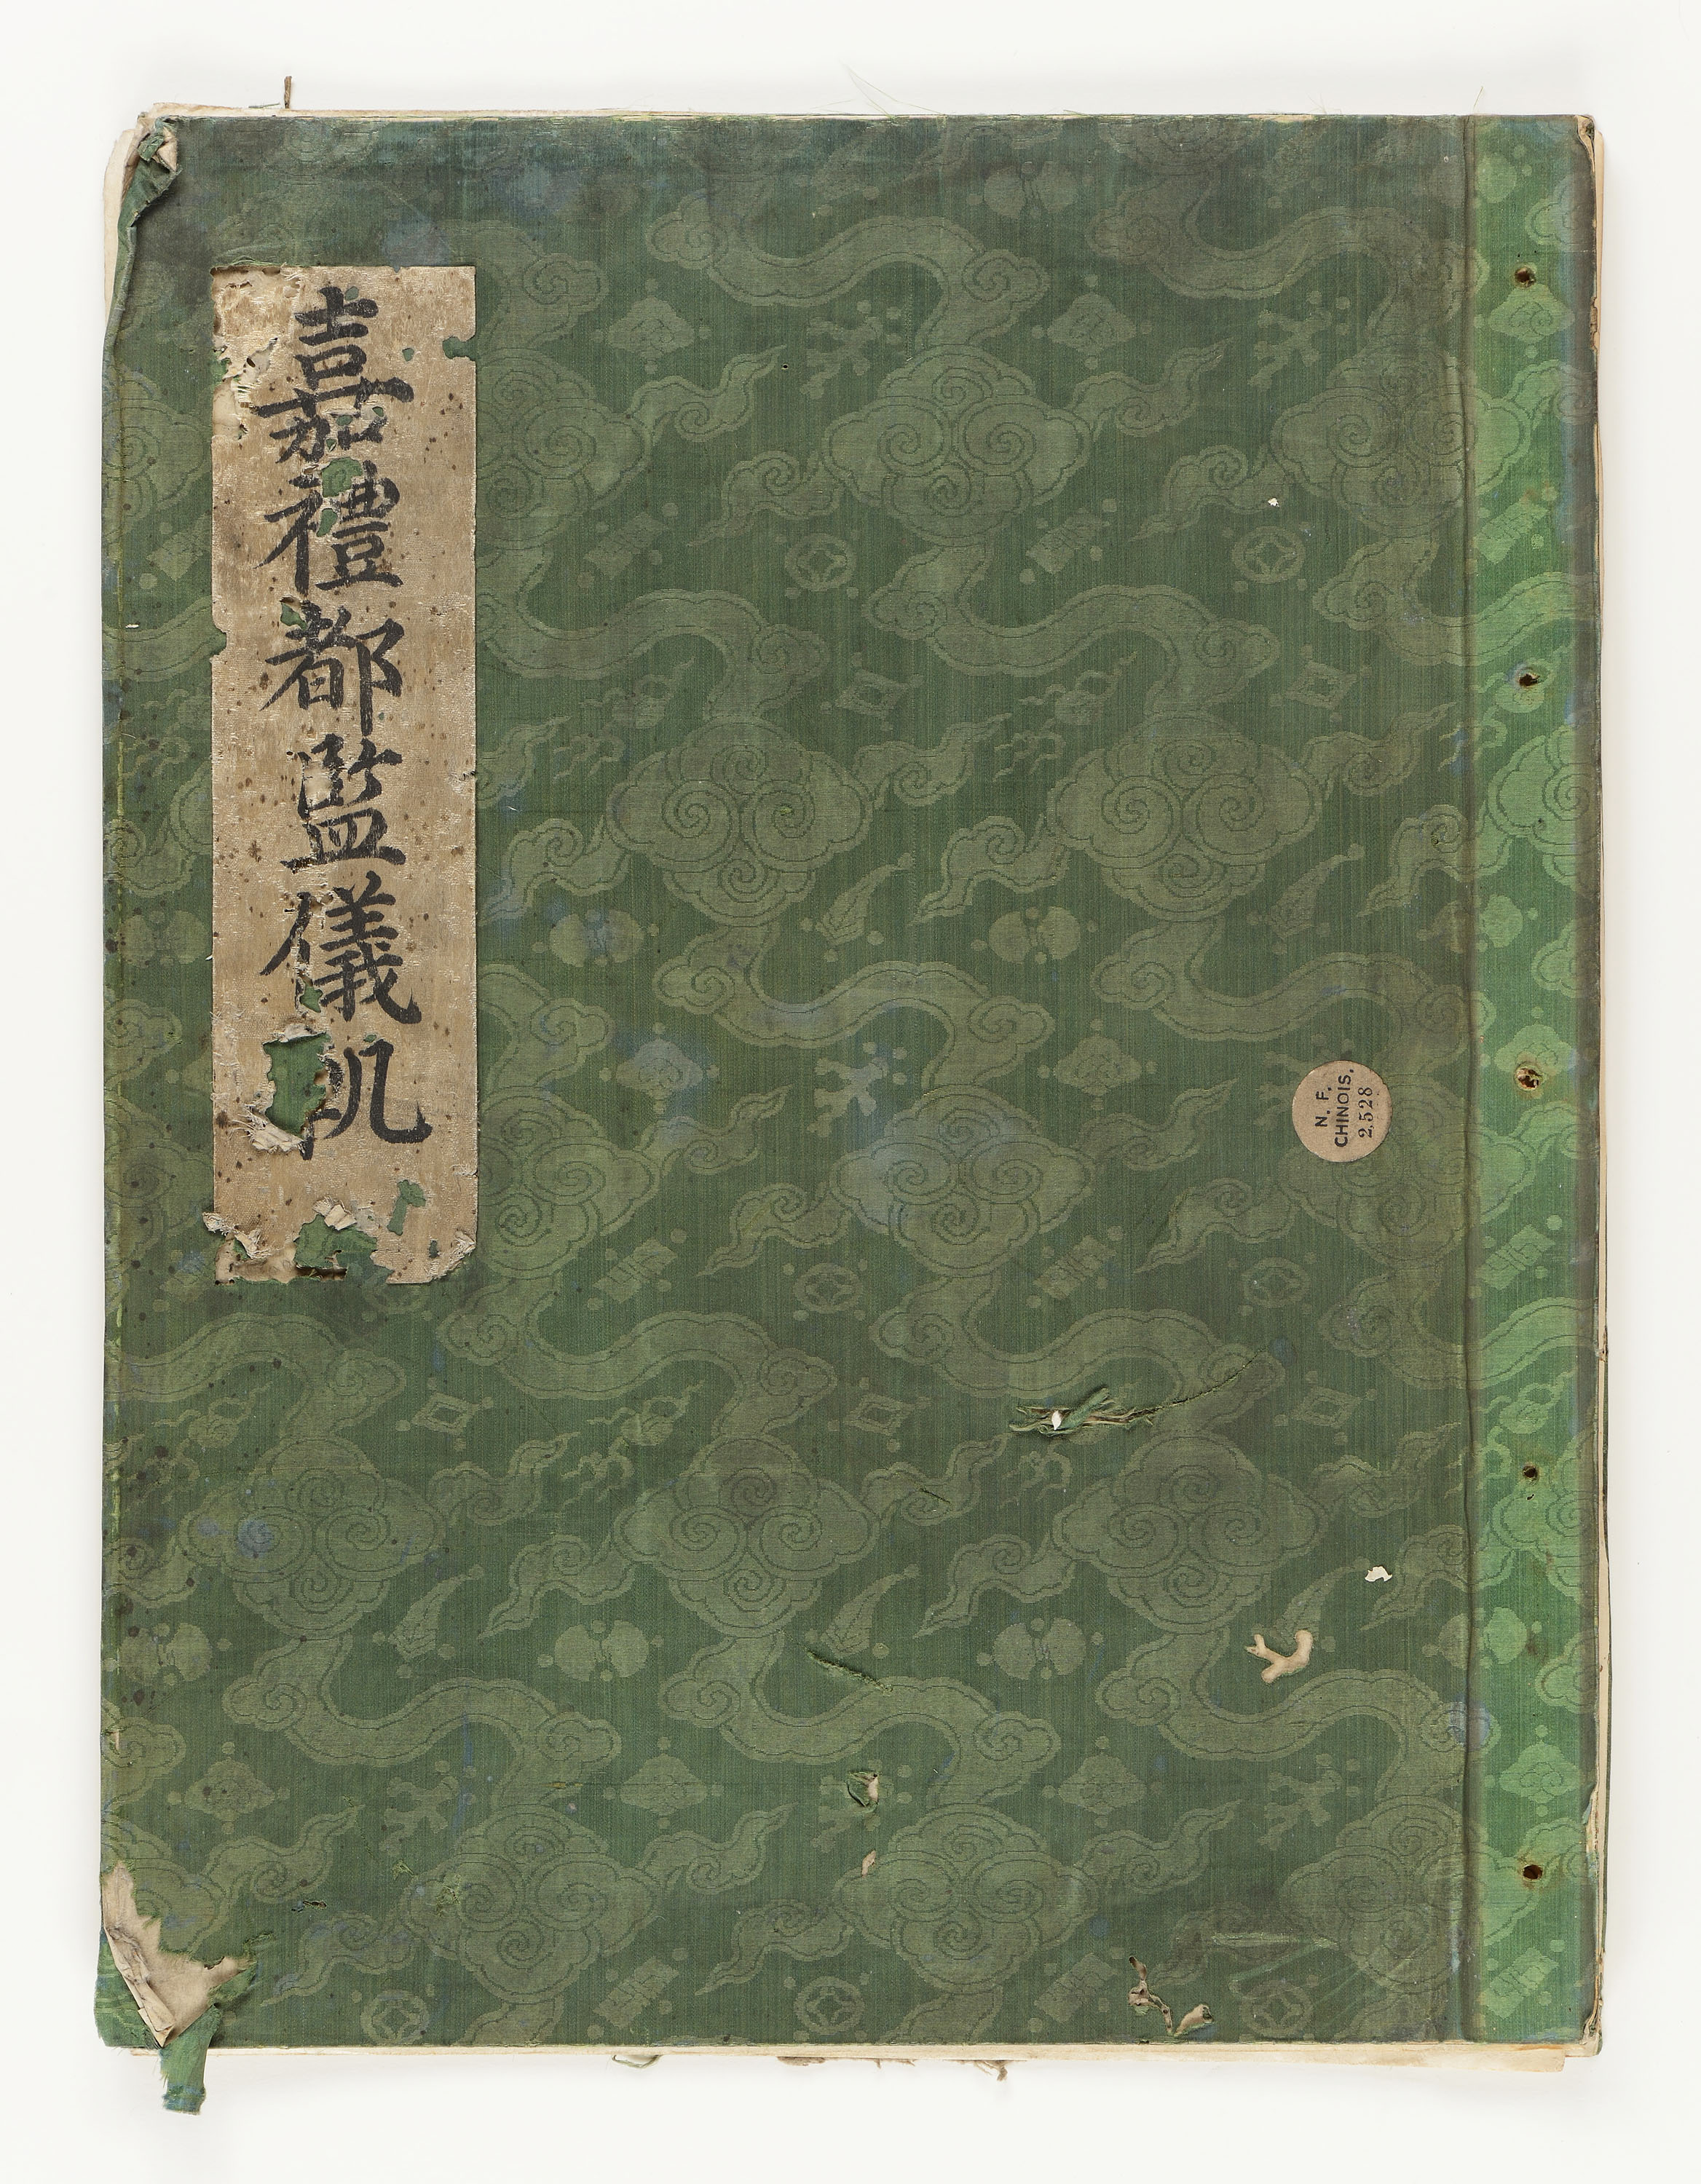 嘉禮都監儀軌
N. F.
CHINOIS.
2528